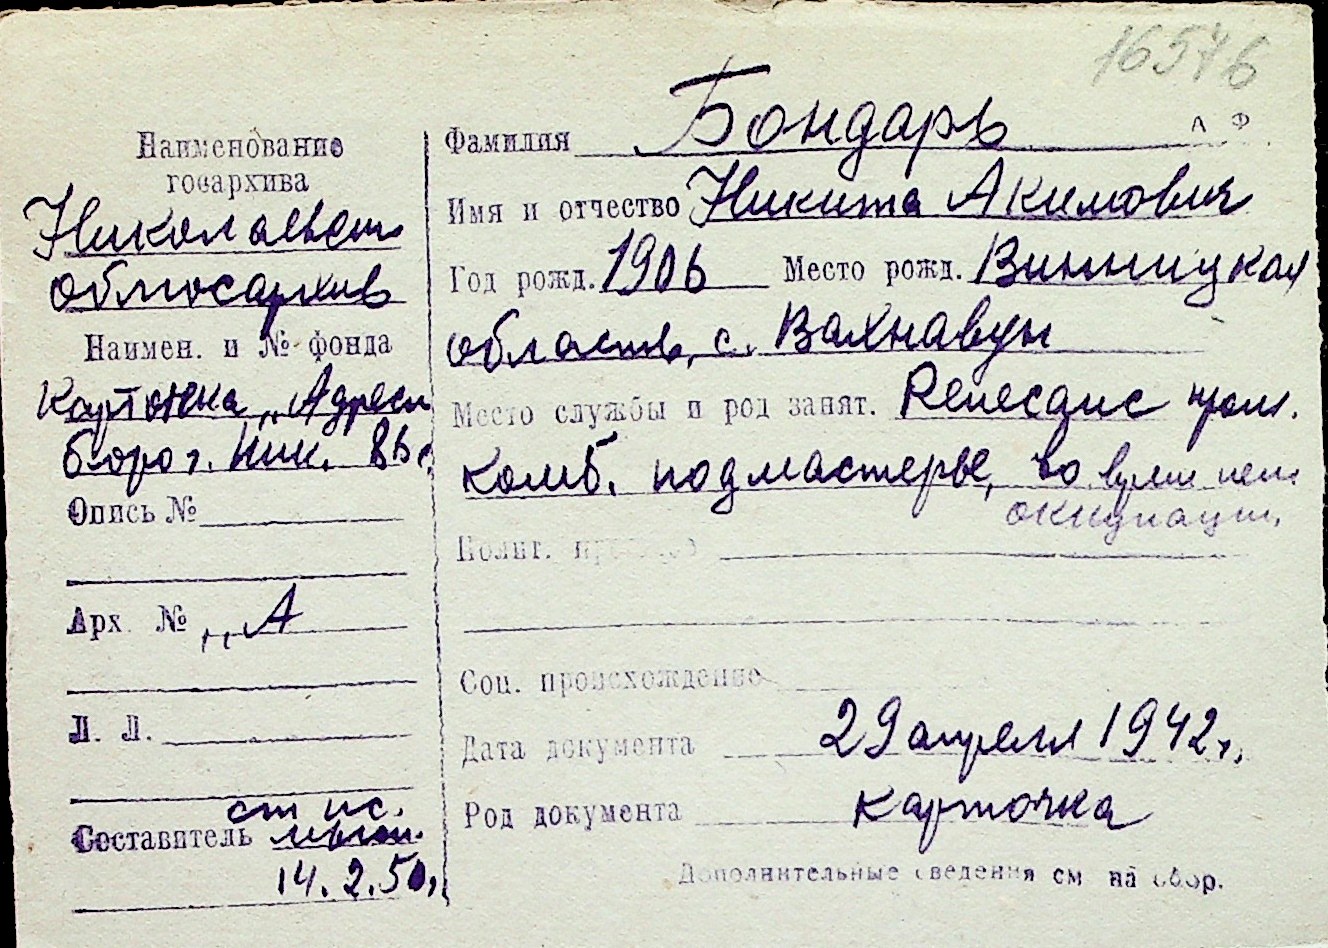 16576
А Ф
Наименование
госархива
облгосархив
Наимен. и № фонда
Картотека „Адресн
бюро г. Ник.
Опись №
Арх. № „А
Л. Л.
ст
Составитель
14.2.50г
Фамилия Бондарь
Имя и отчество Никита Акимович
Год рожд. 1906 Место рожд. Винницкая
область, с.
Место службы и род занят. пром.
комб. подмастерье, во
оккупации,
Полит.
Соц. происхождение
Дата документа 29 апреля 1942 г.
Род документа карточка
Дополнительные сведения см на обор.